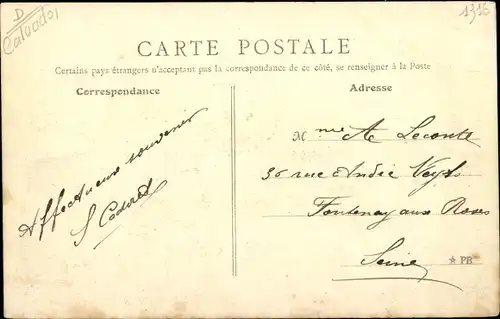 D
Calvados
1316
CARTE POSTALE
Certains pays étrangers n'acceptant pas la correspondance de ce côté, se renseigner à la Poste
Correspondance
Adresse
Affectueux souvenir
Mme A Leconte
36 rue André
Fontenay aux Roses
Seine
★ PB